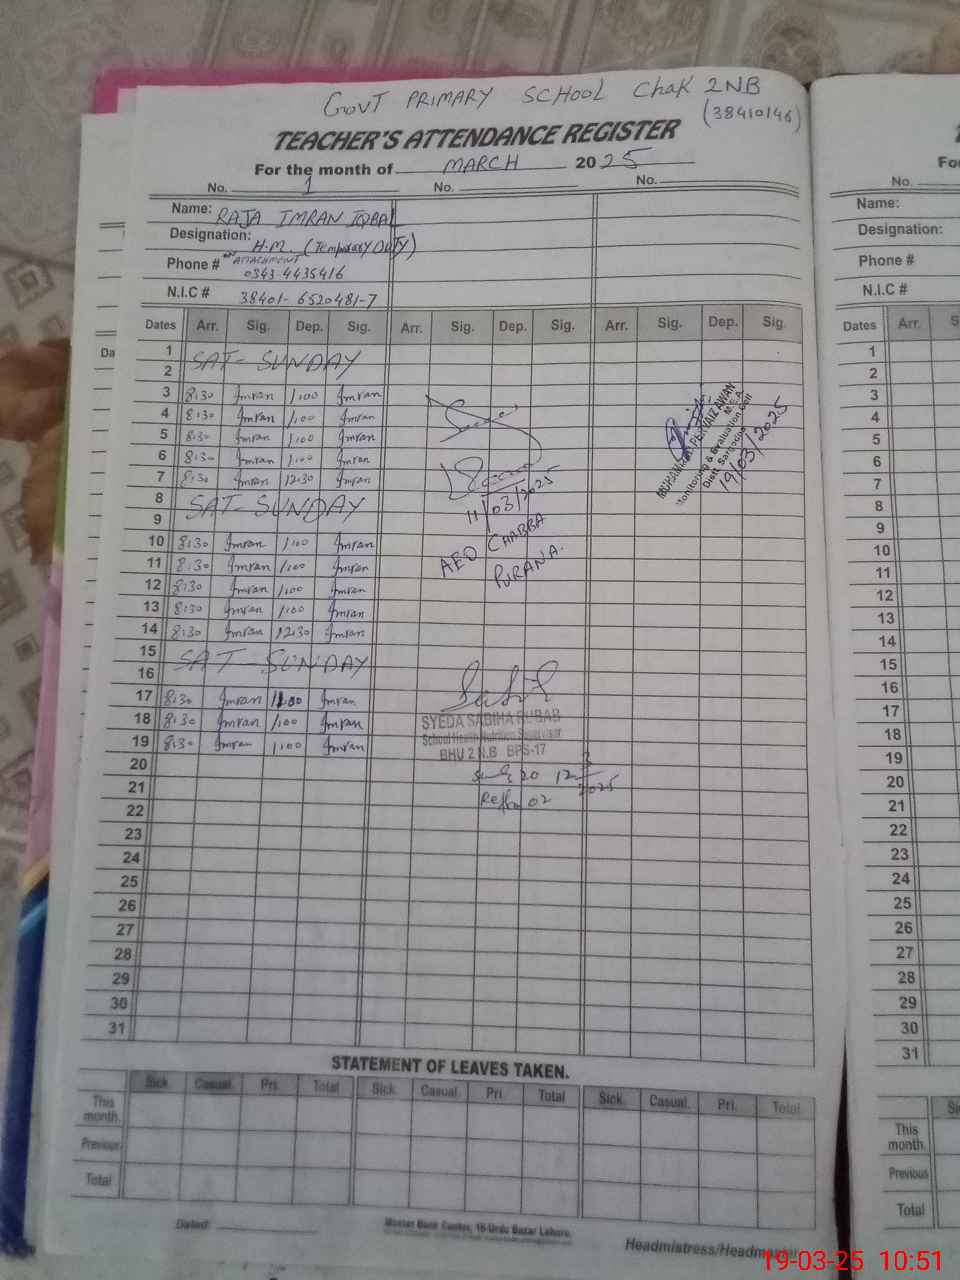 GOVT PRIMARY SCHOOL Chak 2NB
(38410146)
TEACHER'S ATTENDANCE REGISTER
For the month of MARCH 2025
No. 1 No. No.
Name: RAJA IMRAN IQBAL
Designation: H.M. (Temporary DUTY)
ATTACHMENT
Phone # 0343-4435416
N.I.C # 38401-6520481-7
Dates Arr. Sig. Dep. Sig. Arr. Sig. Dep. Sig. Arr. Sig. Dep. Sig.
1
2
SAT-SUNDAY
3 8:30 Imran 1:00 Imran
4 8:30 Imran 1:00 Imran
5 8:30 Imran 1:00 Imran
6 8:30 Imran 1:00 Imran
7 8:30 Imran 12:30 Imran
8
9
SAT-SUNDAY
10 8:30 Imran 1:00 Imran
11 8:30 Imran 1:00 Imran
12 8:30 Imran 1:00 Imran
13 8:30 Imran 1:00 Imran
14 8:30 Imran 12:30 Imran
15
16
SAT-SUNDAY
17 8:30 Imran Imran
18 8:30 Imran 1:00 Imran
19 8:30 Imran 1:00 Imran
20
21
22
23
24
25
26
27
28
29
30
31
11/03/2025
AEO CHABBA
PURANA.
MUHAMMAD PERVAIZ AWAN
M.E.A
Monitoring & Evaluation Cell
Distt Sargodha
19/03/2025
SYEDA SABIHA RUBAB
School Health Nutrition Supervisor
BHU 2 N.B BPS-17
20 12 3
2025
02
STATEMENT OF LEAVES TAKEN.
Sick. Casual. Pri. Total Sick. Casual. Pri. Total Sick. Casual. Pri. Total
This month.
Previous
Total
Dated:
Master Book Center, 16-Urdu Bazar Lahore.
Headmistress/Headmaster
No.
Name:
Designation:
Phone #
N.I.C #
Dates Arr.
1
2
3
4
5
6
7
8
9
10
11
12
13
14
15
16
17
18
19
20
21
22
23
24
25
26
27
28
29
30
31
This month.
Previous
Total
19-03-25 10:51